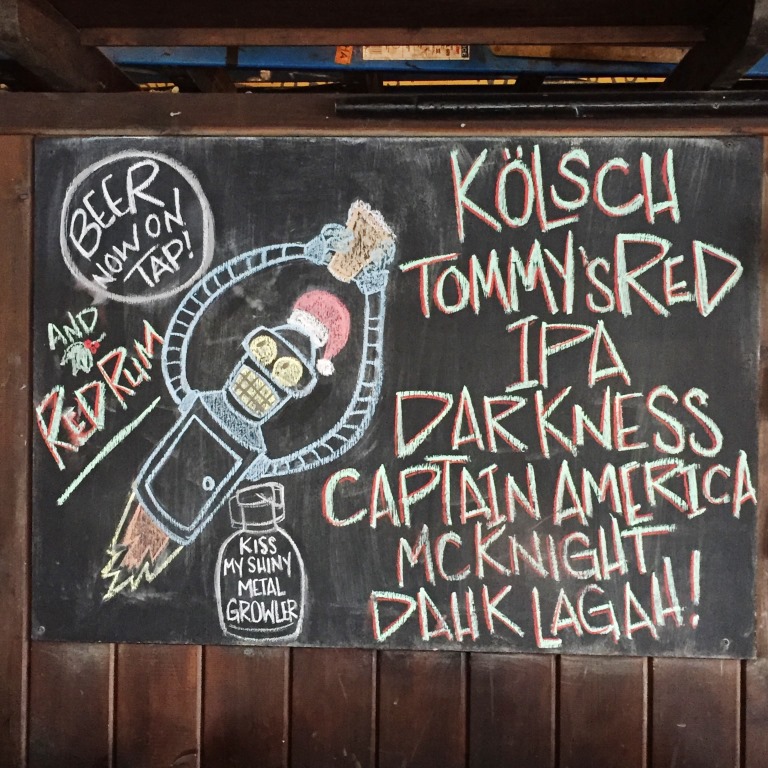 BEER
NOW ON
TAP!
AND
RED RUM
KISS
MY SHINY
METAL
GROWLER
KÖLSCH
TOMMY'S RED
IPA
DARKNESS
CAPTAIN AMERICA
MCKNIGHT
DAHK LAGAH!